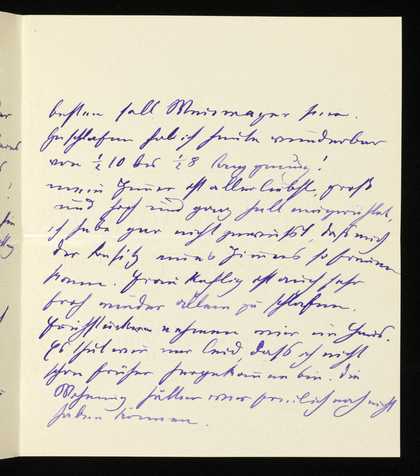 besten fall Weismayer sein.
Geschlafen hab ich heute wunderbar
von ½ 10 bis ½ 8 genug!
mein Zimmer ist allerliebst, groß
und hoch und ganz hell eingerichtet,
ich habe gar nicht gewußt, daß mich
der Besitz eines Zimmers so freuen
kann. Frau Kahlig ist auch sehr
froh wieder allein zu schlafen.
Frühstücken nehmen wir im Haus.
Es thut mir nur leid, daß ich nicht
schon früher hergekommen bin. Die
Wohnung hätten wir freilich noch nicht
haben können.